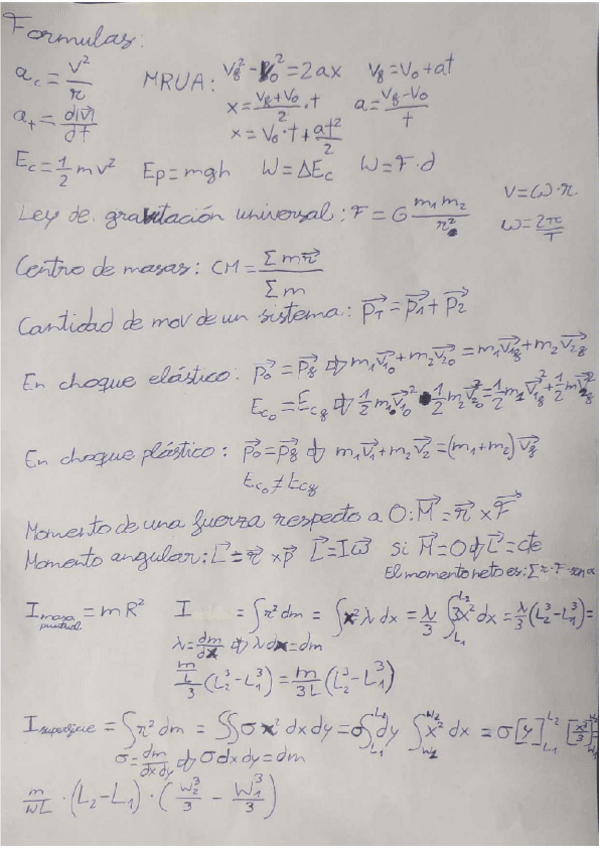 Formulas:
a_c = v²/r   MRUA: v_f² - v_0² = 2ax   v_f = v_0 + at
a_t = d|v⃗|/dt   x = (v_f + v_0)/2 · t   a = (v_f - v_0)/t
x = v_0 · t + at²/2
E_c = 1/2 mv²   Ep = mgh   W = ΔE_c   W = F · d
v = ω · r
Ley de gravitación universal: F = G m_1 m_2/r²   ω = 2π/T
Centro de masas: CM = Σ m r⃗ / Σ m
Cantidad de mov de un sistema: p⃗_T = p⃗_1 + p⃗_2
En choque elástico: p⃗_0 = p⃗_f ⇒ m_1 v⃗_10 + m_2 v⃗_20 = m_1 v⃗_1f + m_2 v⃗_2f
E_c0 = E_cf ⇒ 1/2 m_1 v⃗_10² · 1/2 m_2 v⃗_20² = 1/2 m_1 v⃗_1f² + 1/2 m v⃗_2f²
En choque plástico: p⃗_0 = p⃗_f ⇒ m_1 v⃗_1 + m_2 v⃗_2 = (m_1 + m_2) v⃗_f
E_c0 ≠ E_cf
Momento de una fuerza respecto a O: M⃗ = r⃗ × F⃗
Momento angular: L⃗ = r⃗ × p   L⃗ = I ω⃗   si M⃗ = 0 ⇒ L⃗ = cte
El momento neto es: Σ r · F · sen α
I masa puntual = m R²   I = ∫ r² dm = ∫ x² λ dx = λ/3 ∫_{L_1}^{L_2} 3x² dx = λ/3 (L_2³ - L_1³) =
λ = dm/dx ⇒ λ dx = dm
(m/L)/3 (L_2³ - L_1³) = m/3L (L_2³ - L_1³)
I superficie = ∫ r² dm = ∬ σ x² dx dy = σ ∫_{L_1}^{L_2} dy ∫_{W_2}^{W_2} x² dx = σ [y]_{L_1}^{L_2} [x³/3] =
σ = dm/dx dy ⇒ σ dx dy = dm
m/WL · (L_2 - L_1) · (W_2³/3 - W_1³/3)